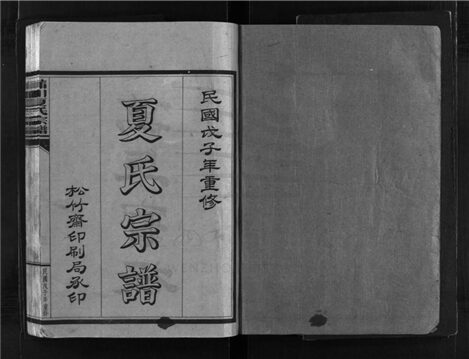 民國戊子年重修
夏氏宗譜
松竹齋印刷局承印